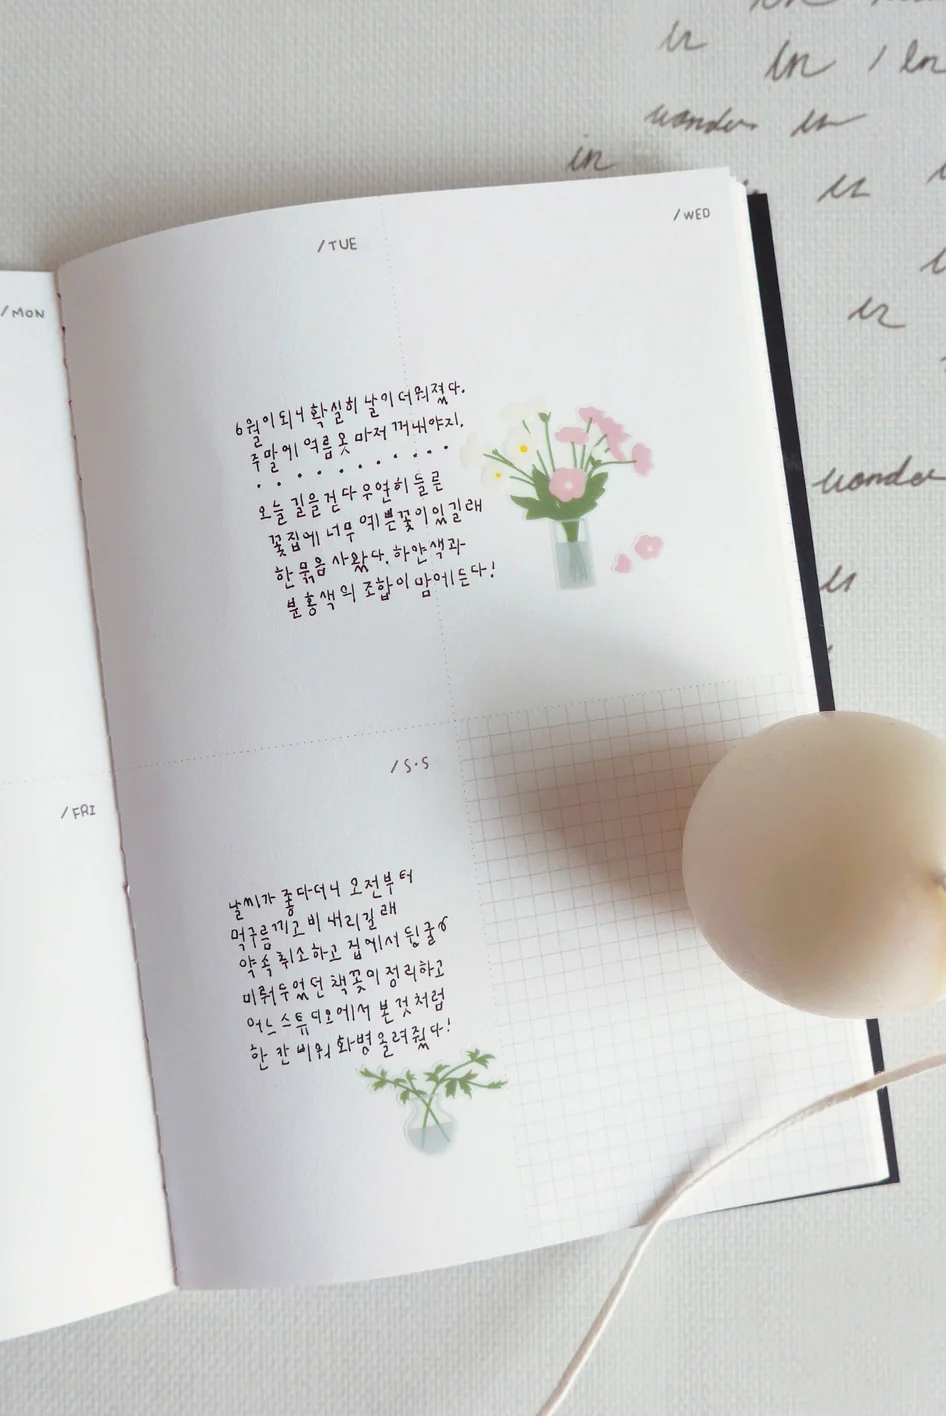 in
in / in
wonder in
in
/MON
/TUE
/WED
6월이 되니 확실히 날이 더워졌다.
주말에 여름옷 마저 꺼내야지.
오늘 길을 걷다 우연히 들른
꽃집에 너무 예쁜 꽃이 있길래
한 묶음 사왔다. 하얀색과
분홍색의 조합이 맘에 든다!
wonder
/FRI
/S·S
날씨가 좋다더니 오전부터
먹구름끼고 비 내리길래
약속 취소하고 집에서 뒹굴
미뤄두었던 책꽂이 정리하고
어느 스튜디오에서 본 것처럼
한 칸 비워 화병 올려줬다!